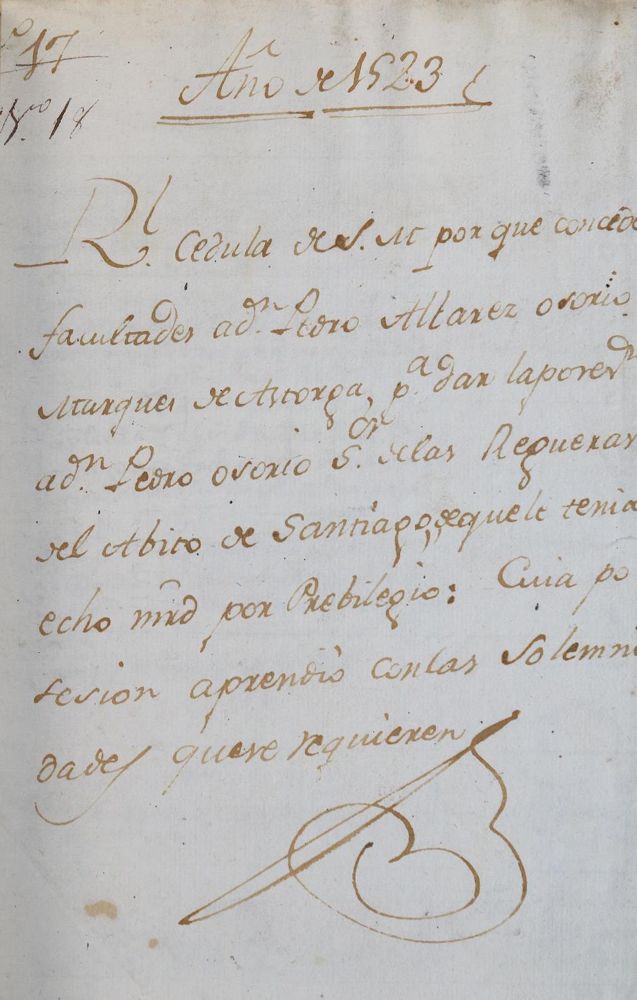 17
N.ro 18
Año de 1523
Rl. Cedula de S. M por que concede
facultades a dn. Pedro Albarez osorio
Marques de Astorga, pa. dar la posesn
a dn. Pedro osorio Sor. de las Regueras
del Abito de Santiago, de que le tenia
echo mrd por Prebilegio: Cuia po
sesion aprendio con las Solemni
dades que se requieren